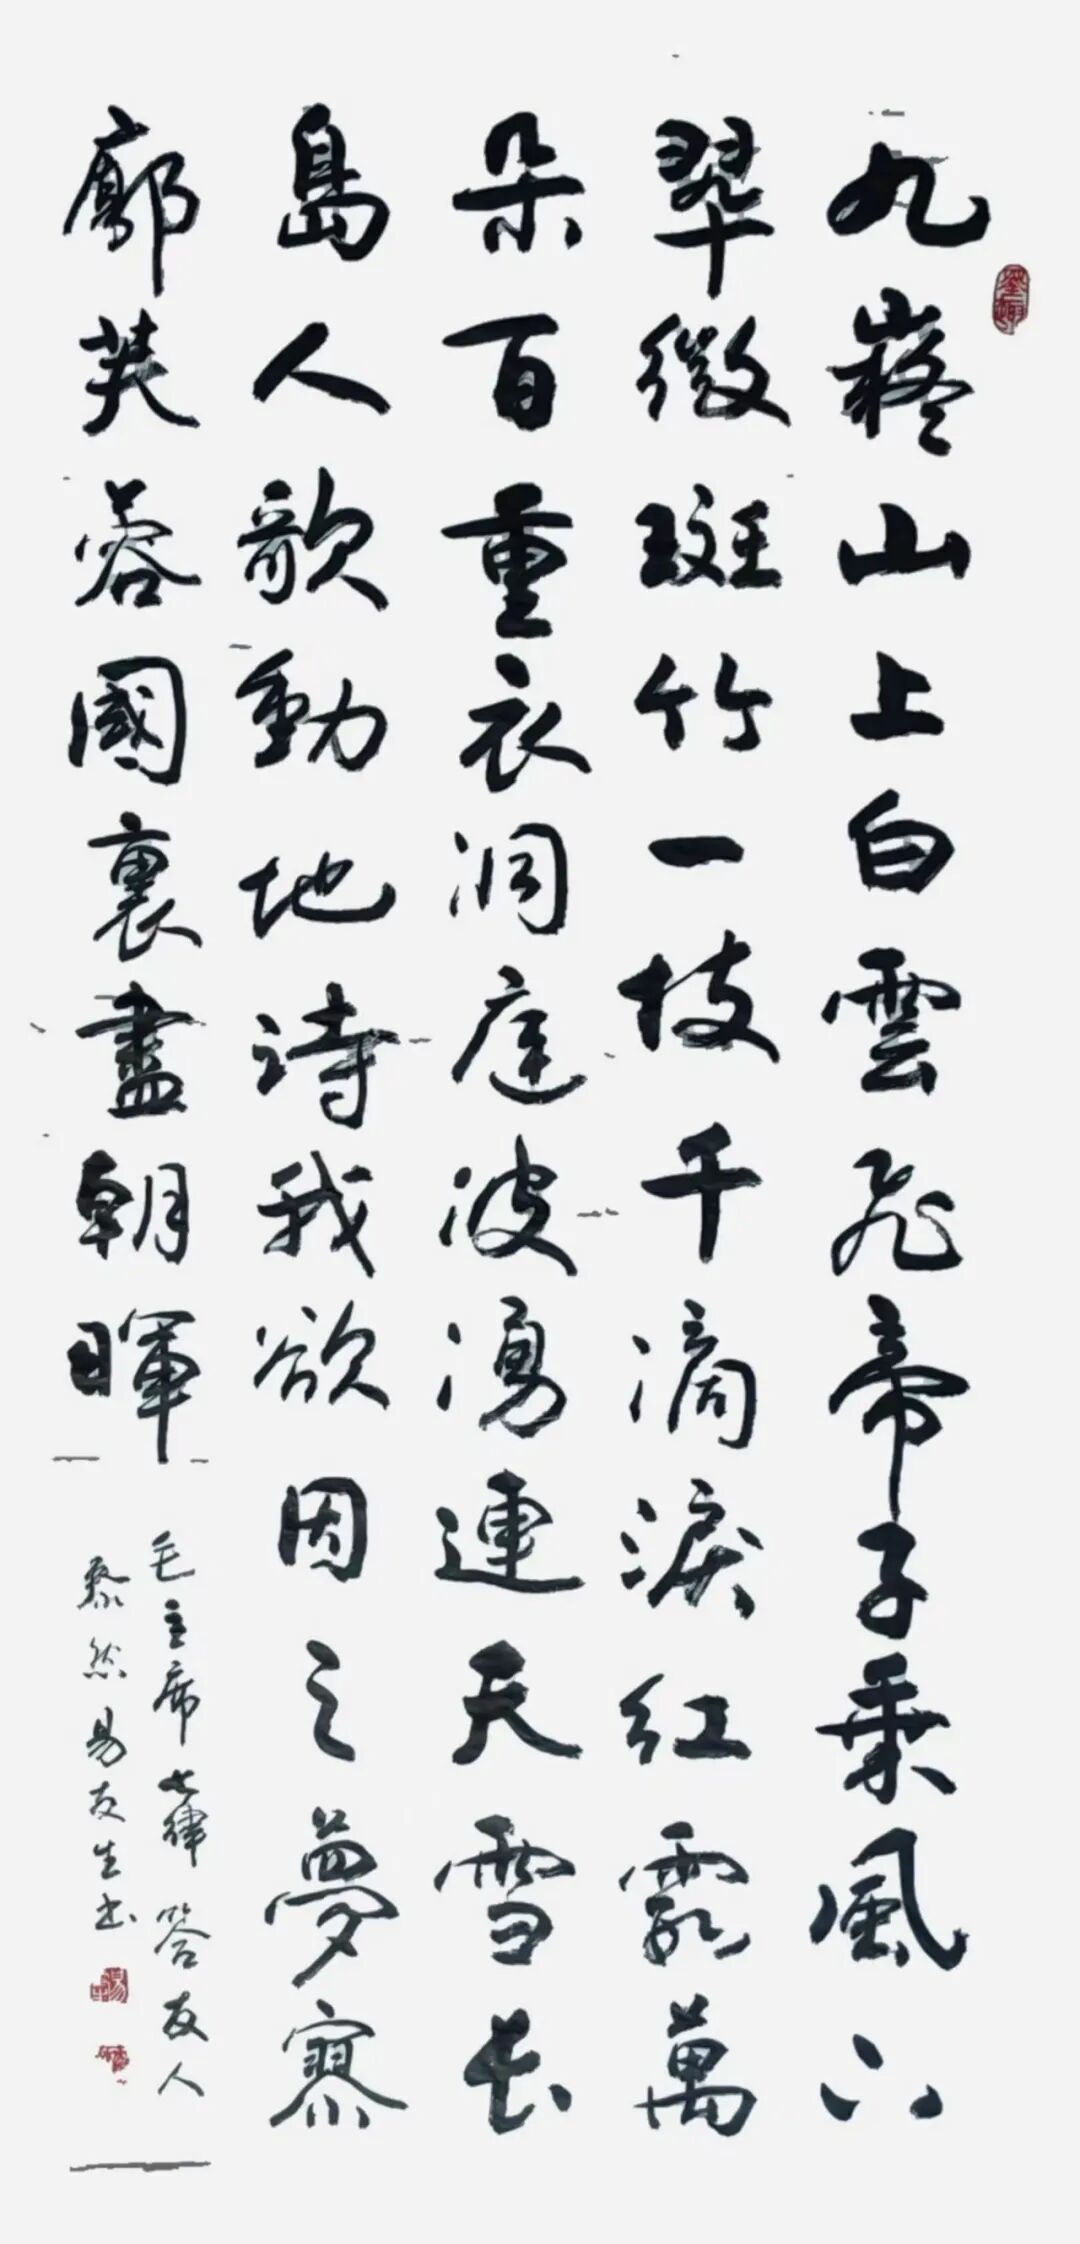 九嶷山上白雲飛帝子乘風下
翠微斑竹一枝千滴淚紅霞萬
朵百重衣洞庭波湧連天雪長
島人歌動地詩我欲因之夢寥
廓芙蓉國裏盡朝暉
毛主席七律 答友人
然易友生书
墨趣